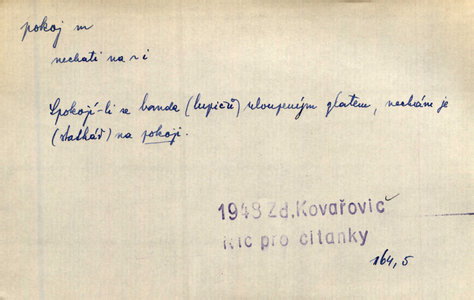 pokoj m
nechati na ~ i
Spokojí-li se banda (lupičů) uloupeným zlatem, necháme je
(statkář) na pokoji.
1948 Zd. Kovařovič
Nic pro čítanky
164,5